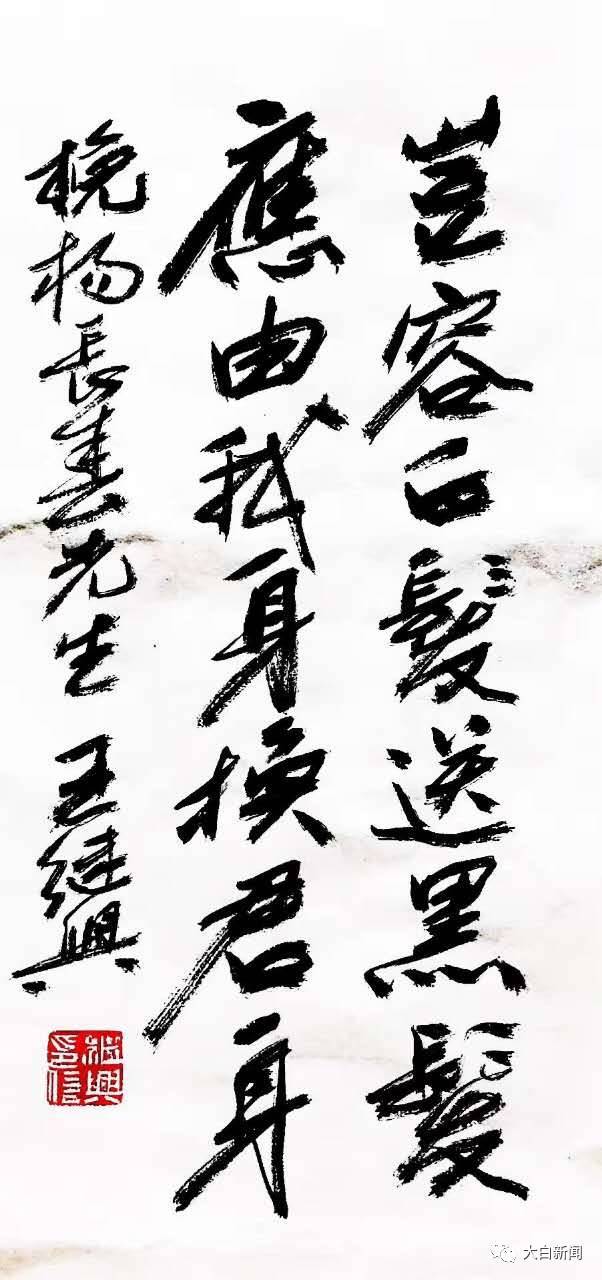 豈容白髮送黑髮
應由我身換君身
挽杨長春先生 王继興
继興印信
大白新闻